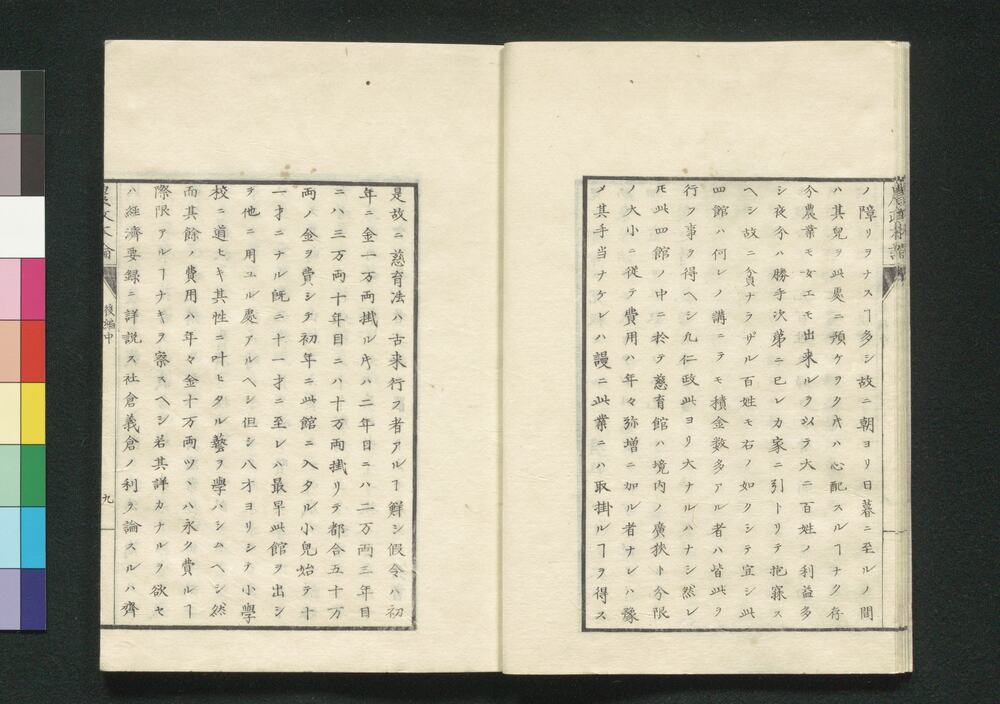 ノ障リヲナスヿ多シ故ニ朝ヨリ日暮ニ至ルノ間
ハ其兒ヲ此處ニ預ケヲク片ハ心配スルヿナク存
分農業モ女工モ出来ルヲ以テ大ニ百姓ノ利益多
シ夜分ハ勝手次第ニ已レカ家ニ引トリテ抱寐ス
ヘシ故ニ貧ナラザル百姓モ右ノ如クシテ宜シ此
四館ハ何レノ講ニテモ積金数多アル者ハ皆此ヲ
行フ事ヲ得ヘシ凡仁政此ヨリ大ナルハナシ然レ
𪜈此四館ノ中ニ於テ慈育館ハ境内ノ廣狹ト分限
ノ大小ニ従テ費用ハ年々弥増ニ加ル者ナレハ豫
メ其手当ナケレハ謾ニ此業ニハ取掛ルヿヲ得ス
是故ニ慈育法ハ古来行フ者アルヿ鮮シ假令ハ初
年ニ金一万両掛ル片ハ二年目ニハ二万両三年目
ニハ三万両十年目ニハ十万両掛リテ都合五十万
両ノ金ヲ費シテ初年ニ此館ニ入タル小兒始テ十
一才ニナル既ニ十一才ニ至レハ最早此館ヲ出シ
ヲ他ニ用ユル處アルヘシ但シ八才ヨリシテ小學
校ニ道ヒキ其性ニ叶ヒタル藝ヲ學ハシムヘシ然
而其餘ノ費用ハ年々金十万両ツヽハ永ク費ルヿ
際限アルヿナキヲ察スヘシ若其詳カナルヲ欲セ
ハ經濟要録ニ詳説ス社倉義倉ノ利ヲ論スルハ齊
後編中
九